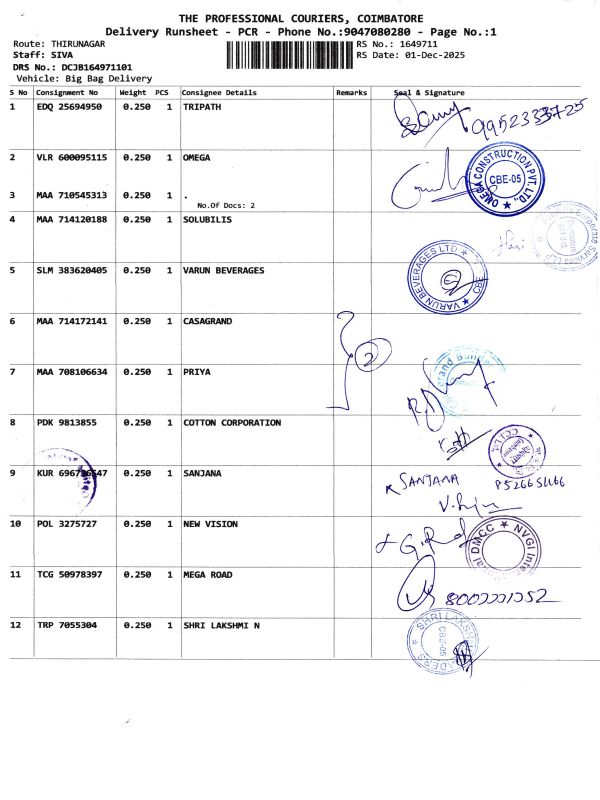 THE PROFESSIONAL COURIERS, COIMBATORE
Delivery Runsheet - PCR - Phone No.:9047080280 - Page No.:1
Route: THIRUNAGAR
Staff: SIVA
DRS No.: DCJB164971101
Vehicle: Big Bag Delivery
RS No.: 1649711
RS Date: 01-Dec-2025
S No Consignment No Weight PCS Consignee Details Remarks Seal & Signature
1 EDQ 25694950 0.250 1 TRIPATH
2 VLR 600095115 0.250 1 OMEGA
OMEGA CONSTRUCTION PVT. LTD., CBE-05
3 MAA 710545313 0.250 1 .
No.Of Docs: 2
4 MAA 714120188 0.250 1 SOLUBILIS
5 SLM 383620405 0.250 1 VARUN BEVERAGES
VARUN BEVERAGES LTD CBE
6 MAA 714172141 0.250 1 CASAGRAND
2
7 MAA 708106634 0.250 1 PRIYA
8 PDK 9813855 0.250 1 COTTON CORPORATION
9 KUR 0.250 1 SANJANA
SANJANA
10 POL 3275727 0.250 1 NEW VISION
DMCC NVGI
11 TCG 50978397 0.250 1 MEGA ROAD
12 TRP 7055304 0.250 1 SHRI LAKSHMI N
SHRI LAKSHMI CBE-05